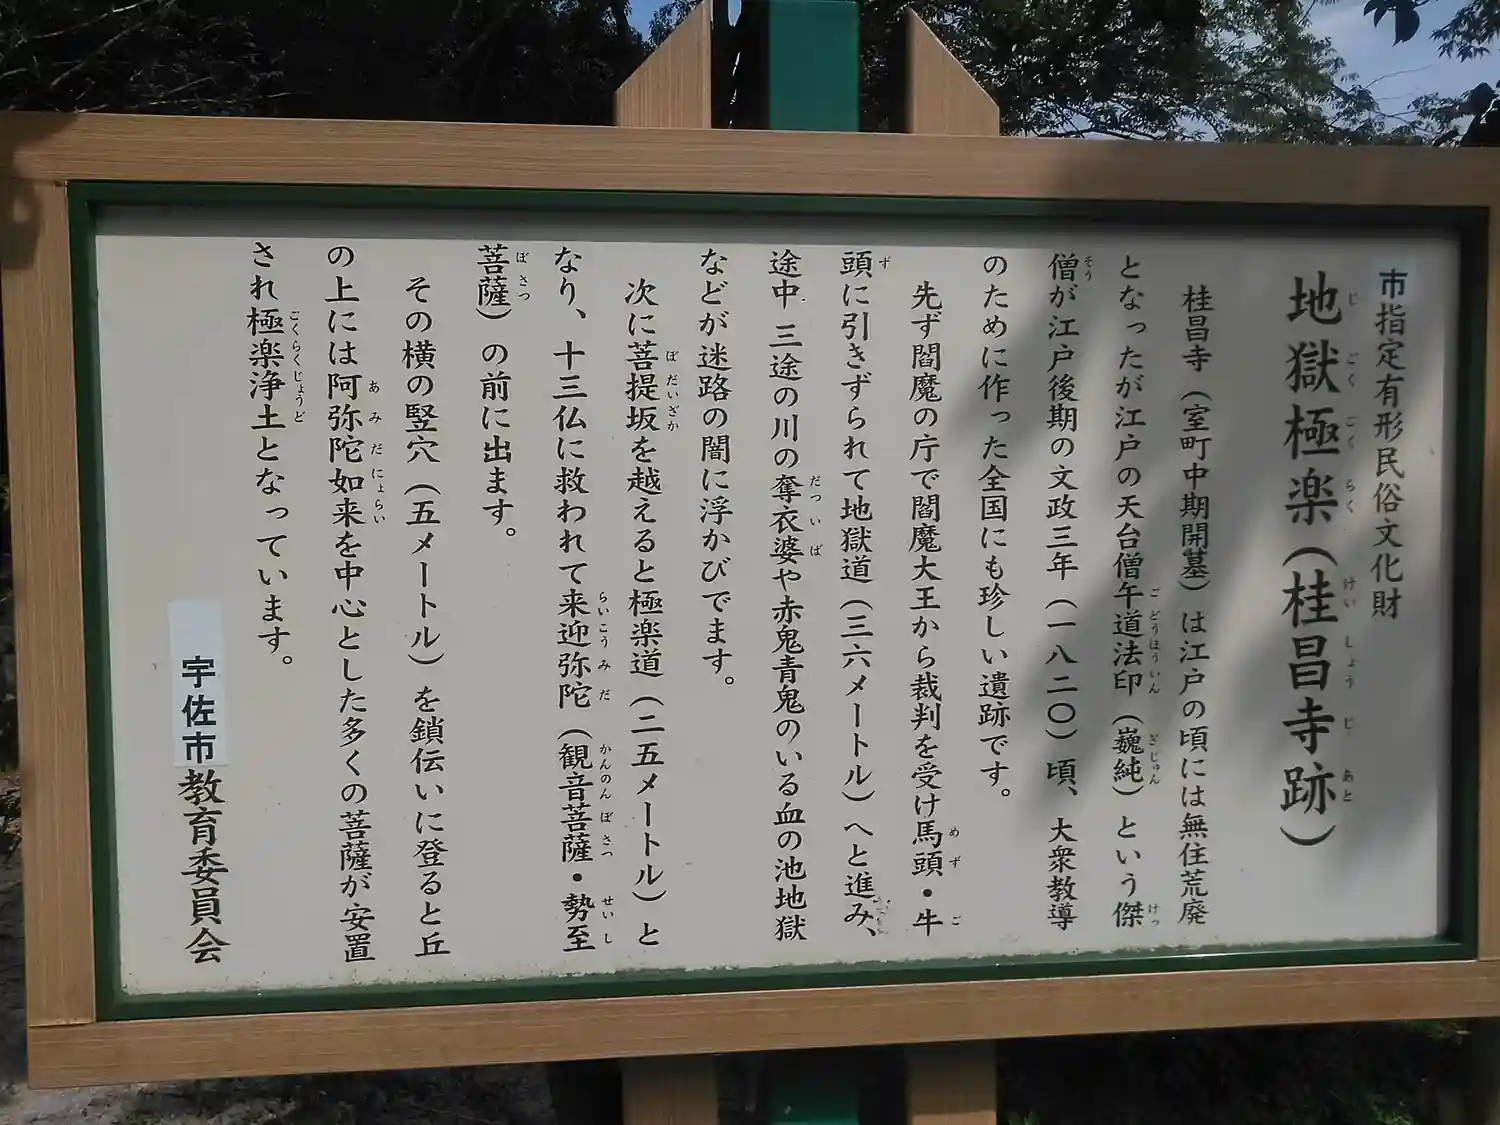 市指定有形民俗文化財
地獄極楽（桂昌寺跡）
桂昌寺（室町中期開墓）は江戸の頃には無住荒廃
となったが江戸の天台僧午道法印（巍純）という傑
僧が江戸後期の文政三年（一八二〇）頃、大衆教導
のために作った全国にも珍しい遺跡です。
先ず閻魔の庁で閻魔大王から裁判を受け馬頭・牛
頭に引きずられて地獄道（三六メートル）へと進み、
途中三途の川の奪衣婆や赤鬼青鬼のいる血の池地獄
などが迷路の闇に浮かびでます。
次に菩提坂を越えると極楽道（二五メートル）と
なり、十三仏に救われて来迎弥陀（観音菩薩・勢至
菩薩）の前に出ます。
その横の竪穴（五メートル）を鎖伝いに登ると丘
の上には阿弥陀如来を中心とした多くの菩薩が安置
され極楽浄土となっています。
宇佐市教育委員会